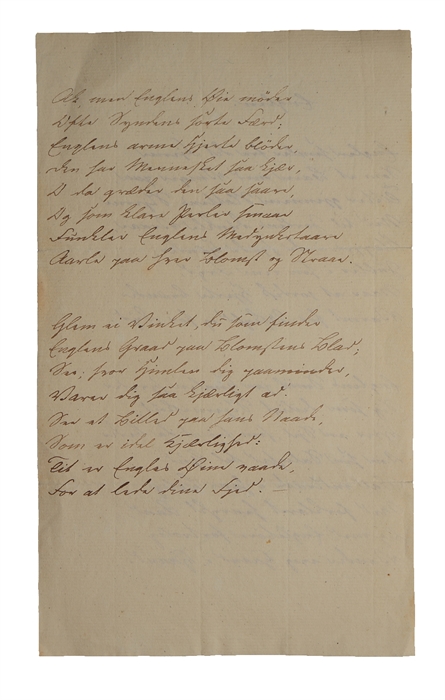 Ak, men Englens Øie møder
Ofte Syndens sorte Færd;
Englens arme Hjerte bløder,
Den har Mennesket saa kjær,
O da græder den saa saare,
Og som klare Perler smaae
Funkler Englens Medynkstaare
Aarle paa hver Blomst og Straae.
Glem ei Vinket, du som finder
Englens Graad paa Blomstens Blad;
See, hvor Himlen dig paaminder,
Varer dig saa kjærligt ad.
See et Billed paa hans Naade,
Som er idel Kjærlighed:
Tit er Engles Øine vaade,
For at lede dine Fjed. —